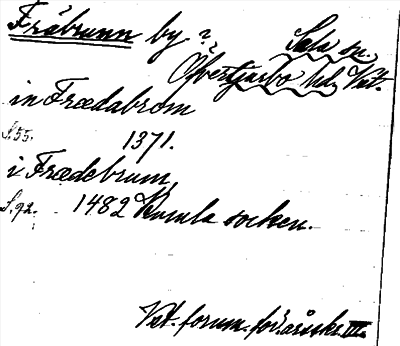 Fröbrunn by ? Sala sn.
Öfvertjurbo hd, Vstl.
in Frædabrom
S. 55. 1371.
i Frædebrunn
S. 92. 1482 Kumla socken.
Vst. fornm. för. årsskr. III.